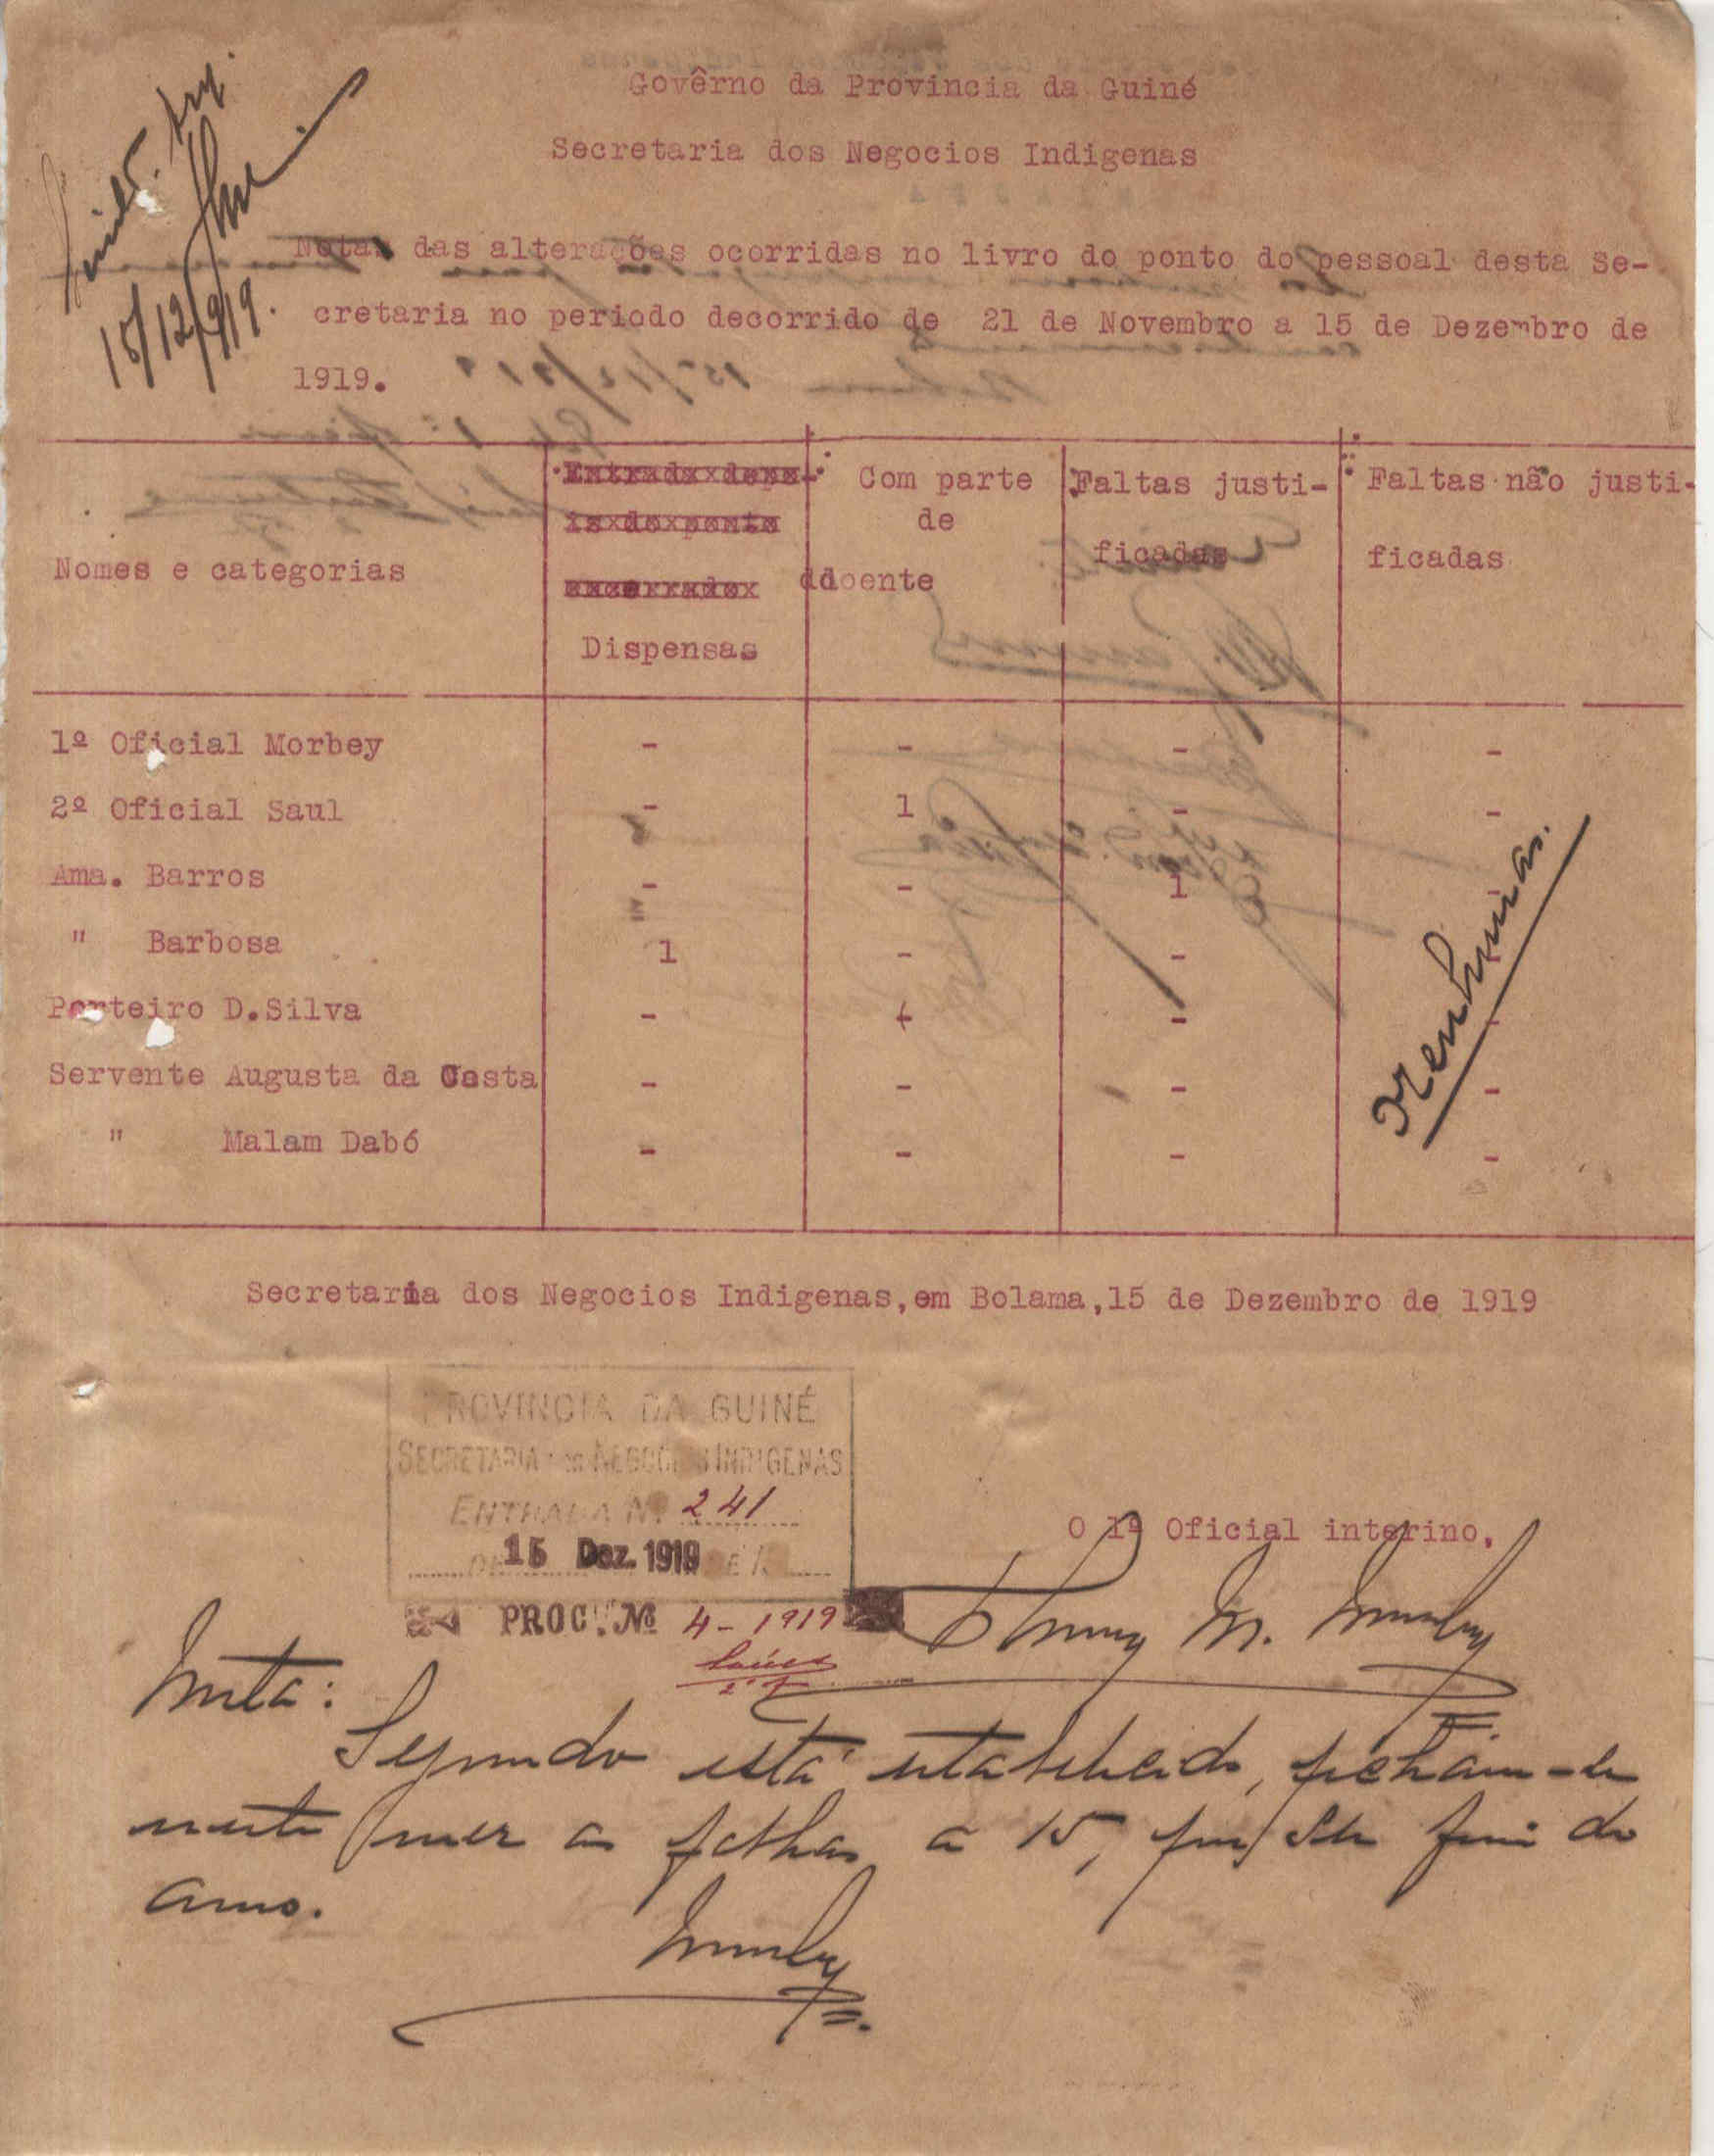 Govêrno da Provincia da Guiné
Secretaria dos Negocios Indigenas
15/12/919.
Notas das alterações ocorridas no livro do ponto do pessoal desta Se-
cretaria no periodo decorrido de 21 de Novembro a 15 de Dezembro de
1919.
Nomes e categorias
Dispensas
Com parte
de
doente
Faltas justi-
ficadas
Faltas não justi-
ficadas
1º Oficial Morbey - - - -
2º Oficial Saul - 1 - -
Ama. Barros - - 1 -
" Barbosa 1 - - -
Porteiro D.Silva - - - -
Servente Augusta da Costa - - - -
" Malam Dabó - - - -
nenhumas.
Secretaria dos Negocios Indigenas,em Bolama,15 de Dezembro de 1919
PROVINCIA DA GUINÉ
SECRETARIA DOS NEGOCIOS INDIGENAS
ENTRADA Nº 241
15 Dez. 1919
PROC. Nº 4-1919
O 1º Oficial interino,
Nota:
Segundo está estabelecido, fecham-se
neste mez as folhas a 15, por ser fim do
ano.
Morbey